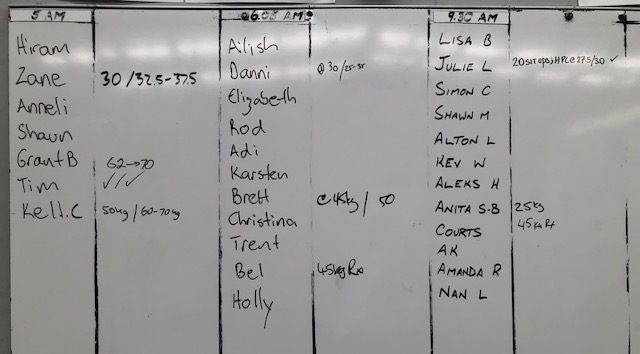 5 AM
Hiram
Zane 30/32.5-37.5
Anneli
Shaun
Grant B 62→70
Tim ✓✓✓
Kell.C 50kg/60-70kg
6.05 AM
Ailish
Danni @30/25-35
Elizabeth
Rod
Adi
Karsten
Brett @45kg/50
Christina
Trent
Bel 45kg Rx
Holly
9.30 AM
LISA B
JULIE L 27.5/30 ✓
SIMON C
SHAWN M
ALTON L
KEV W
ALEKS H
ANITA S-B 25kg
COURTS 45kg Rx
AK
AMANDA R
NAN L